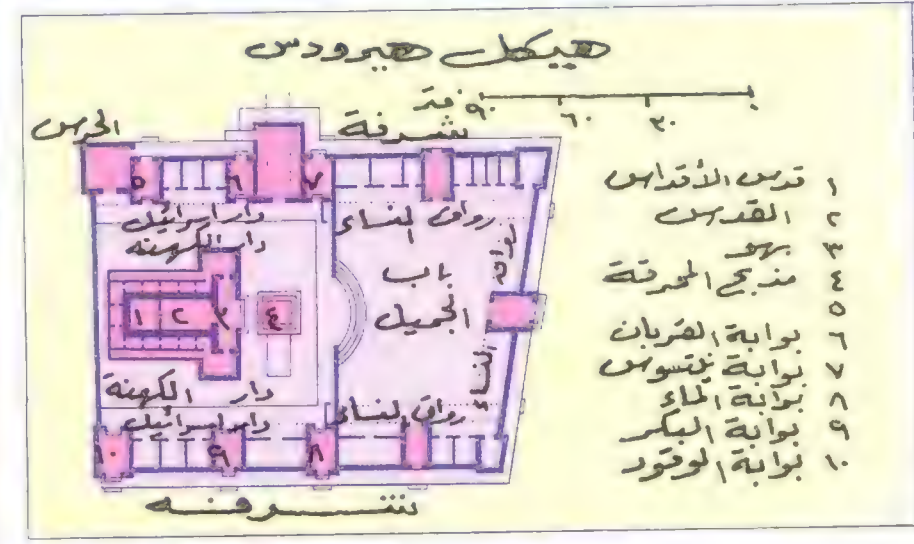 هيكل هيرودس
٩٠ متر ٦٠ ٣٠ ٠
الحرس
شرفة
٥ ٦ ٧
دار اسرائيل
رواق النساء
دار الكهنة
رواق النساء
باب الجميل
١ ٢ ٣ ٤
دار الكهنة
دار اسرائيل
رواق النساء
١٠ ٩ ٨
شرفة
١ قدس الأقداس
٢ القدس
٣ بهو
٤ مذبح المحرقة
٥
٦ بوابة القربان
٧ بوابة نيتسوس
٨ بوابة الماء
٩ بوابة البكر
١٠ بوابة الوقود